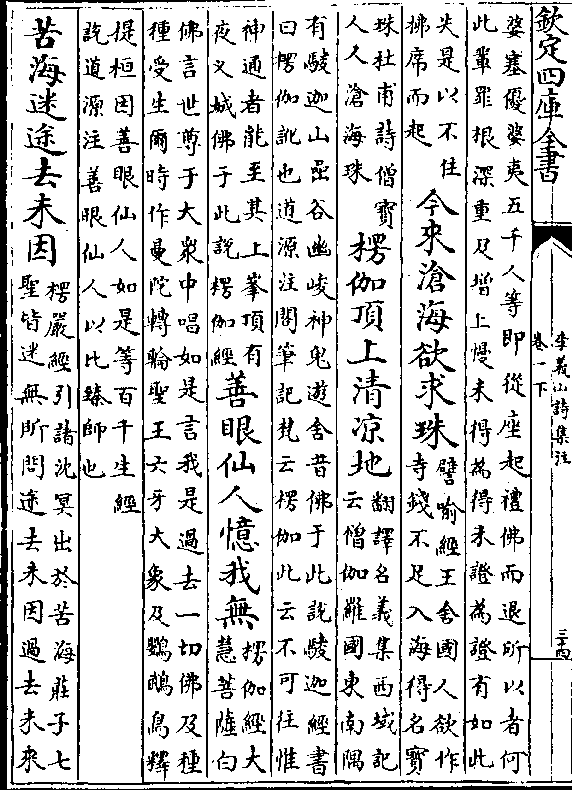 欽定四庫全書
李義山詩集注
卷一下
三十四
婆塞優婆夷五千人等即從座起禮佛而退所以者何
此輩罪根深重及增上慢未得為得未證為證有如此
失是以不住
拂席而起
今來滄海欲求珠
譬喻經王舍國人欲作
寺錢不足入海得名寶
珠杜甫詩僧寶
人人滄海珠
楞伽頂上清凉地
翻譯名義集西域記
云僧伽羅國東南隅
有駿迦山嵒谷幽峻神鬼遊舍昔佛于此說駿迦經書
曰楞伽訛也道源注閣筆記梵云楞伽此云不可往惟
神通者能至其上峯頂有
夜义城佛于此說楞伽經
善眼仙人憶我無
楞伽經大
慧菩薩白
佛言世尊于大衆中唱如是言我是過去一切佛及種
種受生爾時作曼陀轉輪聖王六牙大象及鸚鵡鳥釋
提桓因善眼仙人如是等百千生經
說道源注善眼仙人以比臻師也
苦海迷途去未因
楞嚴經引諸沈冥出於苦海莊子七
聖皆迷無所問途去未因過去未來